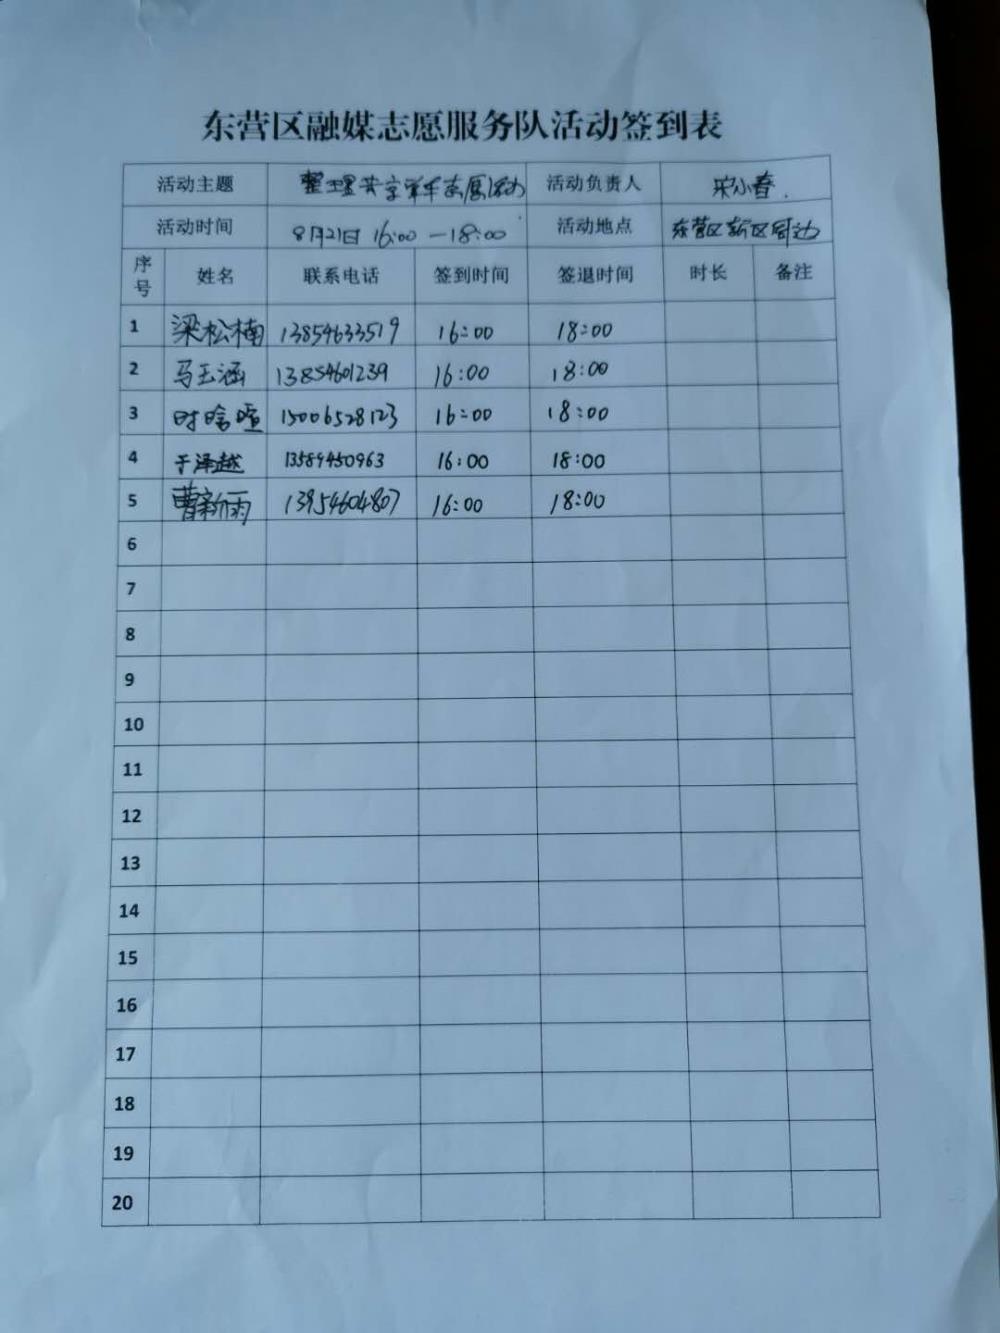 东营区融媒志愿服务队活动签到表
活动主题 整理共享单车志愿活动 活动负责人 宋小春.
活动时间 8月21日 16:00 —18:00 活动地点 东营区新区周边
序号 姓名 联系电话 签到时间 签退时间 时长 备注
1 梁松楠 13854633519 16:00 18:00
2 马玉涵 13854601239 16:00 18:00
3 时晗喧 15006528123 16:00 18:00
4 于泽越 13589450963 16:00 18:00
5 曹新雨 13954604807 16:00 18:00
6
7
8
9
10
11
12
13
14
15
16
17
18
19
20